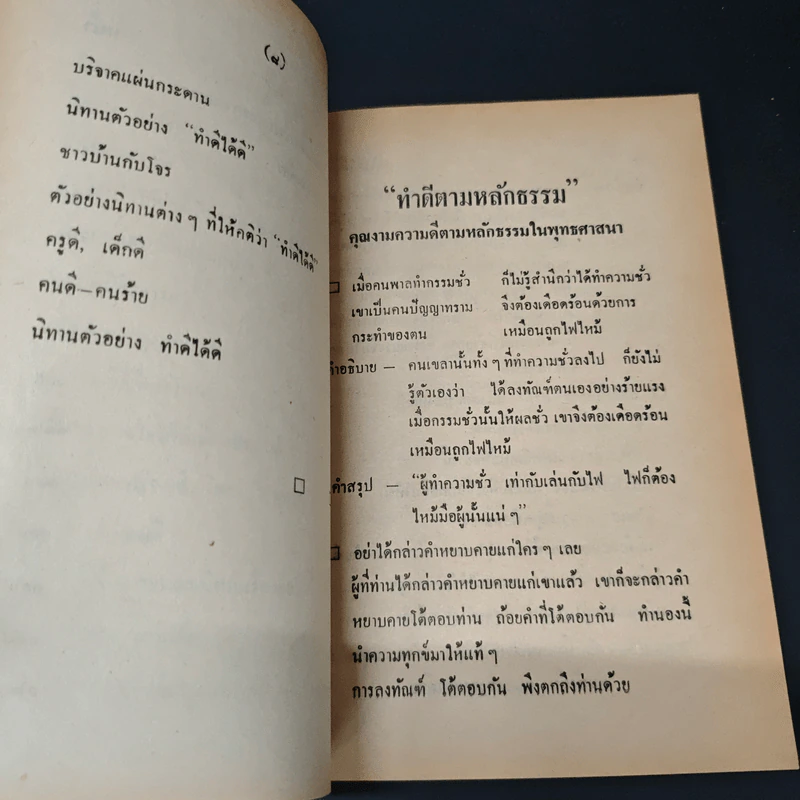 (๙)
บริจาคแผ่นกระดาน
นิทานตัวอย่าง "ทำดีได้ดี"
ชาวบ้านกับโจร
ตัวอย่างนิทานต่าง ๆ ที่ให้คติว่า "ทำดีได้ดี"
ครูดี, เด็กดี
คนดี–คนร้าย
นิทานตัวอย่าง ทำดีได้ดี
"ทำดีตามหลักธรรม"
คุณงามความดีตามหลักธรรมในพุทธศาสนา
เมื่อคนพาลทำกรรมชั่ว ก็ไม่รู้สำนึกว่าได้ทำความชั่ว
เขาเป็นคนปัญญาทราม จึงต้องเดือดร้อนด้วยการ
กระทำของตน เหมือนถูกไฟไหม้
คำอธิบาย – คนเขลานั้นทั้ง ๆ ที่ทำความชั่วลงไป ก็ยังไม่
รู้ตัวเองว่า ได้ลงทัณฑ์ตนเองอย่างร้ายแรง
เมื่อกรรมชั่วนั้นให้ผลชั่ว เขาจึงต้องเดือดร้อน
เหมือนถูกไฟไหม้
คำสรุป – "ผู้ทำความชั่ว เท่ากับเล่นกับไฟ ไฟก็ต้อง
ไหม้มือผู้นั้นแน่ ๆ"
อย่าได้กล่าวคำหยาบคายแก่ใคร ๆ เลย
ผู้ที่ท่านได้กล่าวคำหยาบคายแก่เขาแล้ว เขาก็จะกล่าวคำ
หยาบคายโต้ตอบท่าน ถ้อยคำที่โต้ตอบกัน ทำนองนี้
นำความทุกข์มาให้แท้ ๆ
การลงทัณฑ์ โต้ตอบกัน พึงตกถึงท่านด้วย